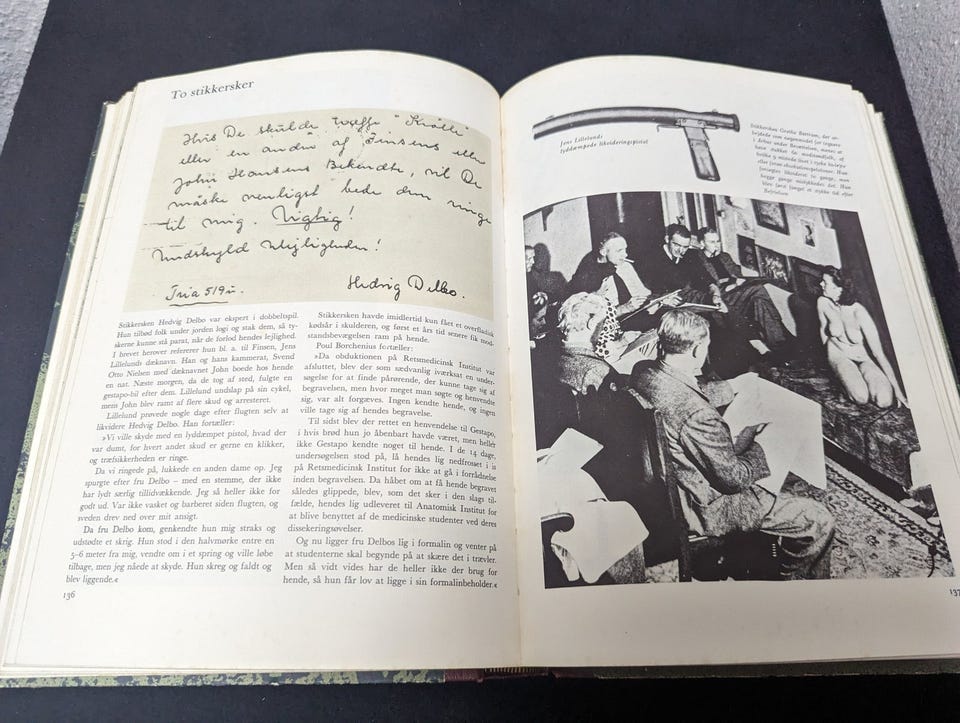 To stikkersker
Hvis De skulde træffe "Krølle"
eller en anden af Finsens eller
John Hansens Bekendte, vil De
måske venligst bede dem ringe
til mig. Vigtig!
Undskyld Ulejligheden!
Tria 519
Hedvig Delbo.
Stikkersken Hedvig Delbo var ekspert i dobbeltspil.
Hun tilbød folk under jorden logi og stak dem, så ty-
skerne kunne stå parat, når de forlod hendes lejlighed.
I brevet herover refererer hun bl. a. til Finsen, Jens
Lillelunds dæknavn. Han og hans kammerat, Svend
Otto Nielsen med dæknavnet John boede hos hende
en nat. Næste morgen, da de tog af sted, fulgte en
gestapo-bil efter dem. Lillelund undslap på sin cykel,
mens John blev ramt af flere skud og arresteret.
Lillelund prøvede nogle dage efter flugten selv at
likvidere Hedvig Delbo. Han fortæller:
»Vi ville skyde med en lyddæmpet pistol, hvad der
var dumt, for hvert andet skud er gerne en klikker,
og træfsikkerheden er ringe.
Da vi ringede på, lukkede en anden dame op. Jeg
spurgte efter fru Delbo – med en stemme, der ikke
har lydt særlig tillidvækkende. Jeg så heller ikke for
godt ud. Var ikke vasket og barberet siden flugten, og
sveden drev ned over mit ansigt.
Da fru Delbo kom, genkendte hun mig straks og
udstødte et skrig. Hun stod i den halvmørke entre en
5-6 meter fra mig, vendte om i et spring og ville løbe
tilbage, men jeg nåede at skyde. Hun skreg og faldt og
blev liggende.«
136
Stikkersken havde imidlertid kun fået et overfladisk
kødsår i skulderen, og først et års tid senere fik mod-
standsbevægelsen ram på hende.
Poul Borchenius fortæller:
»Da obduktionen på Retsmedicinsk Institut var
afsluttet, blev der som sædvanlig iværksat en under-
søgelse for at finde pårørende, der kunne tage sig af
begravelsen, men hvor meget man søgte og henvendte
sig, var alt forgæves. Ingen kendte hende, og ingen
ville tage sig af hendes begravelse.
Til sidst blev der rettet en henvendelse til Gestapo,
i hvis brød hun jo åbenbart havde været, men heller
ikke Gestapo kendte noget til hende. I de 14 dage,
undersøgelsen stod på, lå hendes lig nedfrosset i is
på Retsmedicinsk Institut for ikke at gå i forrådnelse
inden begravelsen. Da håbet om at få hende begravet
således glippede, blev, som det sker i den slags til-
fælde, hendes lig udleveret til Anatomisk Institut for
at blive benyttet af de medicinske studenter ved deres
dissekeringsøvelser.
Og nu ligger fru Delbos lig i formalin og venter på
at studenterne skal begynde på at skære det i trævler.
Men så vidt vides har de heller ikke der brug for
hende, så hun får lov at ligge i sin formalinbeholder.«
Jens Lillelunds
lyddæmpede likvideringspistol
Stikkersken Grethe Bartram, der ar-
bejdede som nøgenmodel for tegnere
i Århus under Besættelsen, menes at
have stukket 60 modstandsfolk, af
hvilke 9 mistede livet i tyske
eller foran eksekutionspelotoner. Hun
forsøgtes likvideret to gange, men
begge gange mislykkedes det. Hun
blev først fanget et stykke tid efter
Befrielsen
137